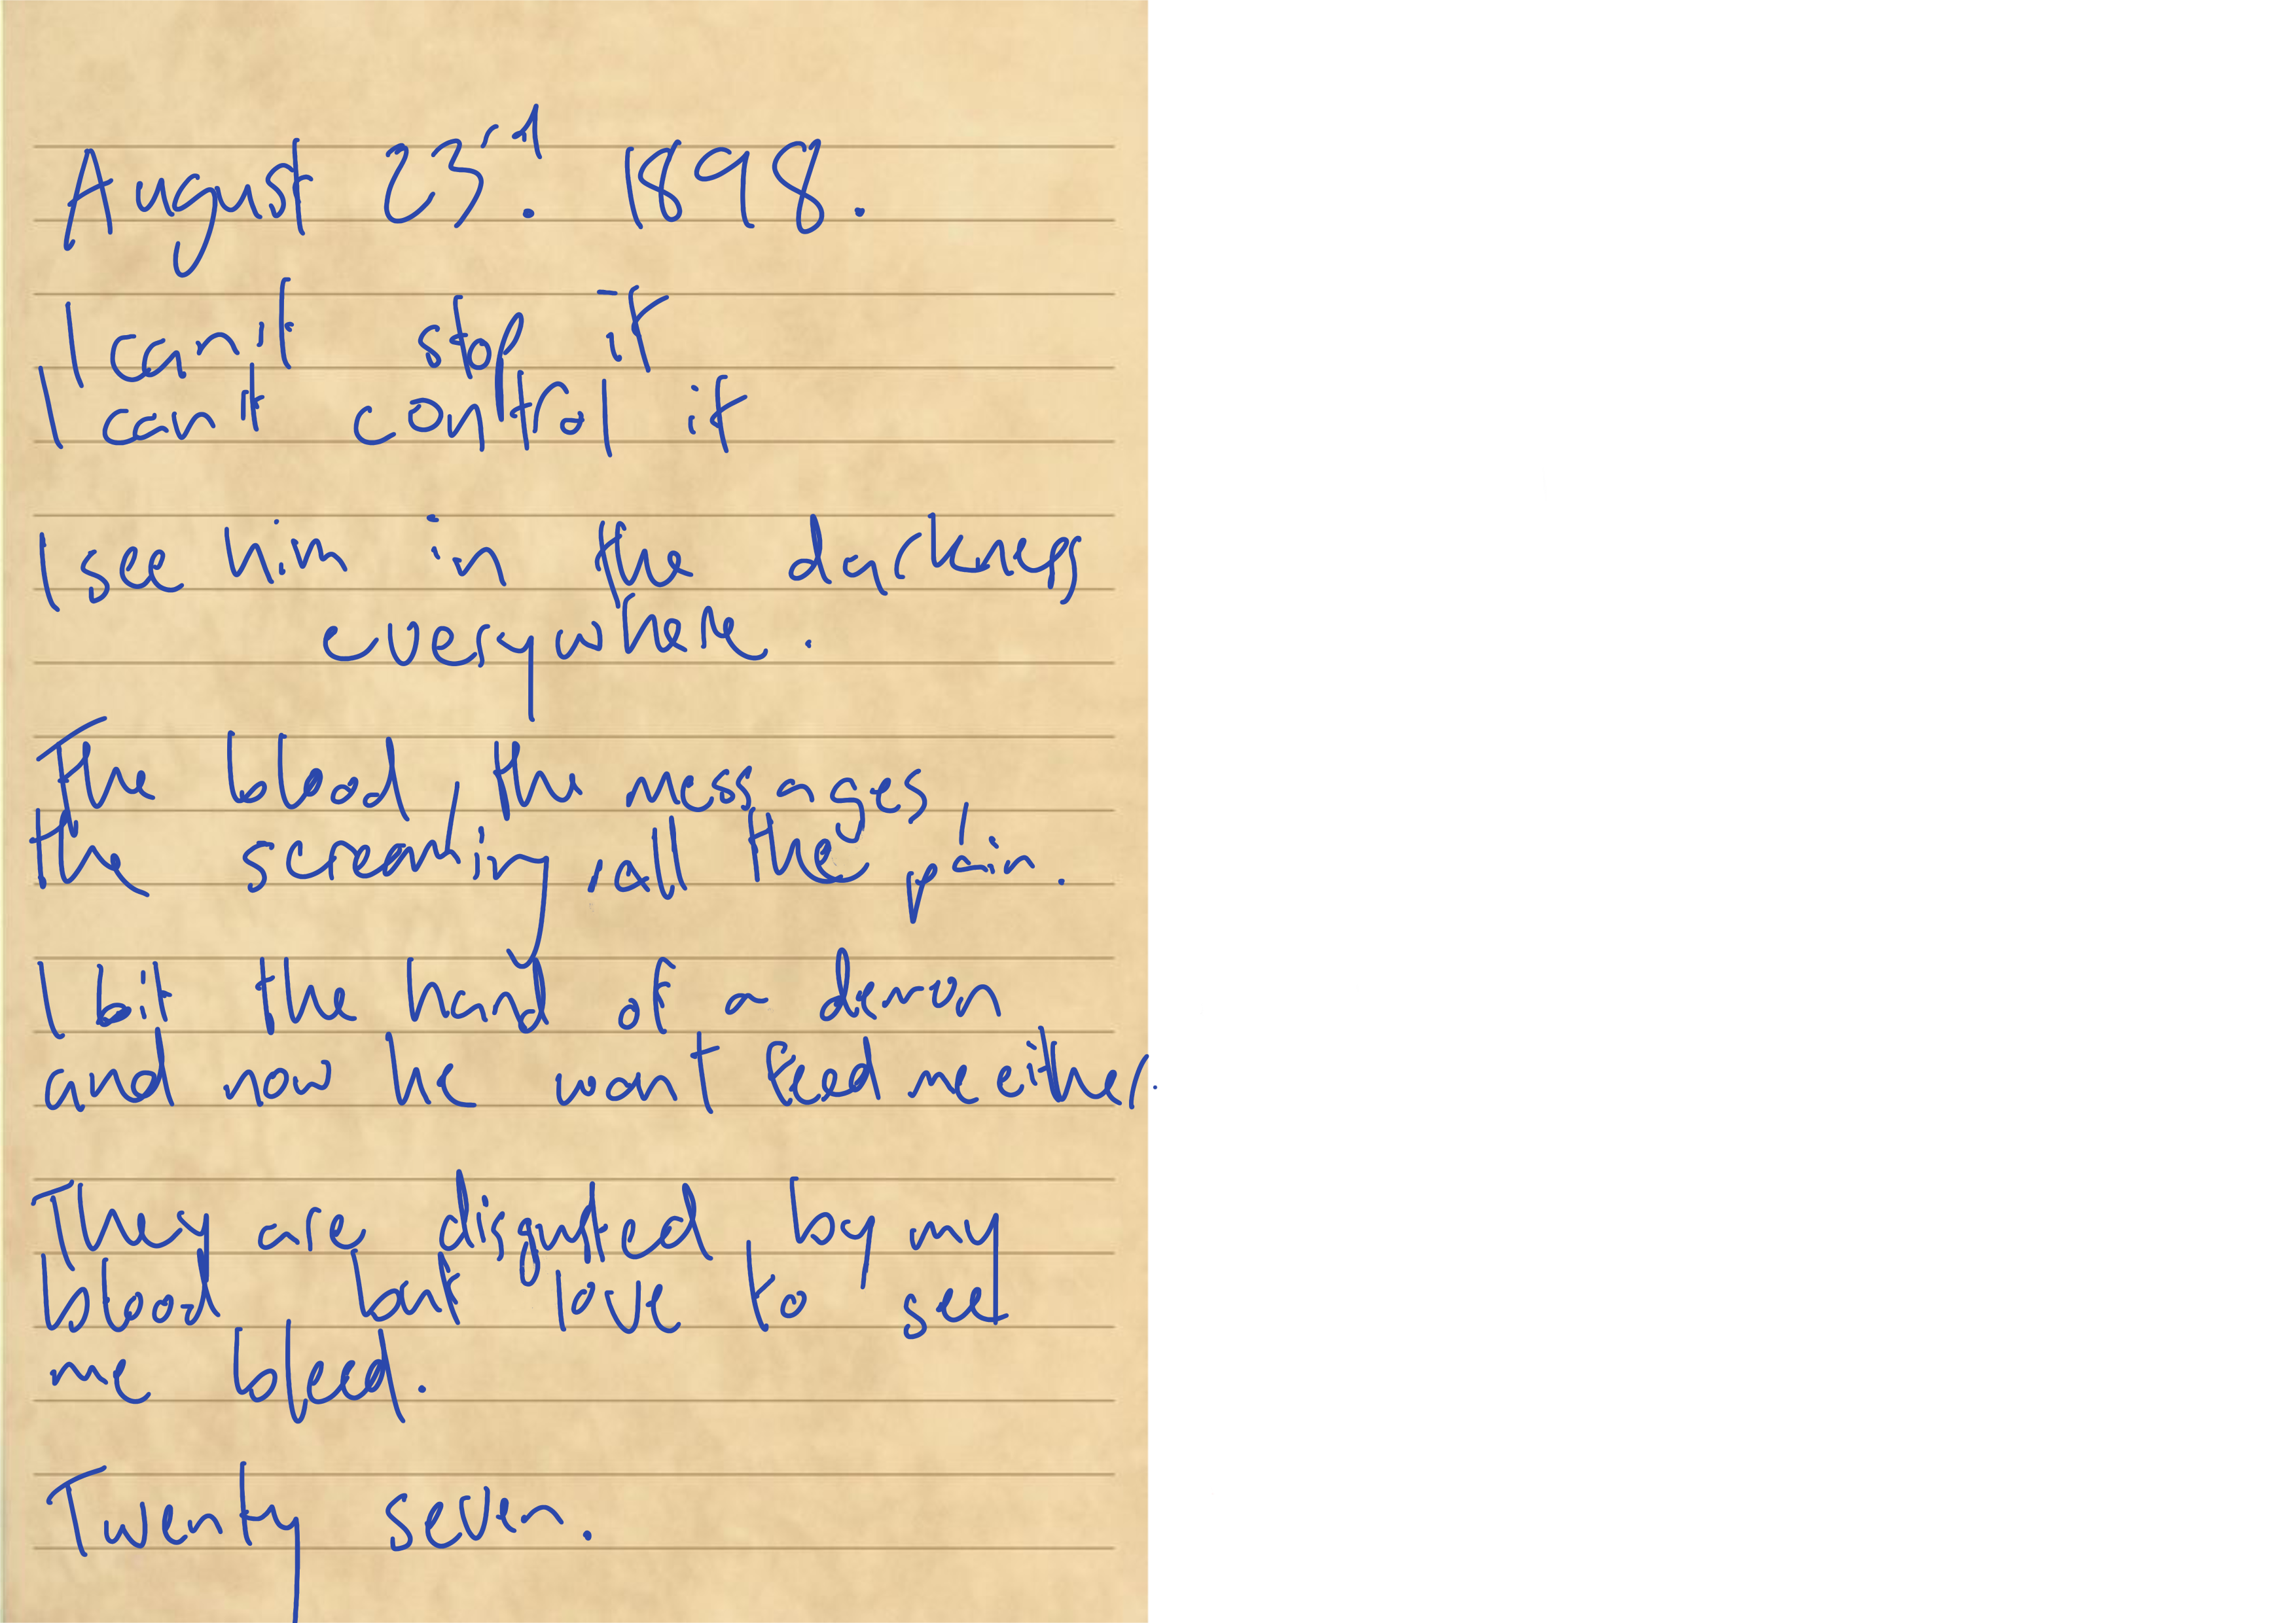 August 23rd. 1898.
I can't stop it
I can't control it
I see him in the darkness
everywhere.
The blood, the messages,
the screaming, all the pain.
I bit the hand of a demon
and now he wont feed me either.
They are disgusted by my
blood, but love to see
me bleed.
Twenty seven.